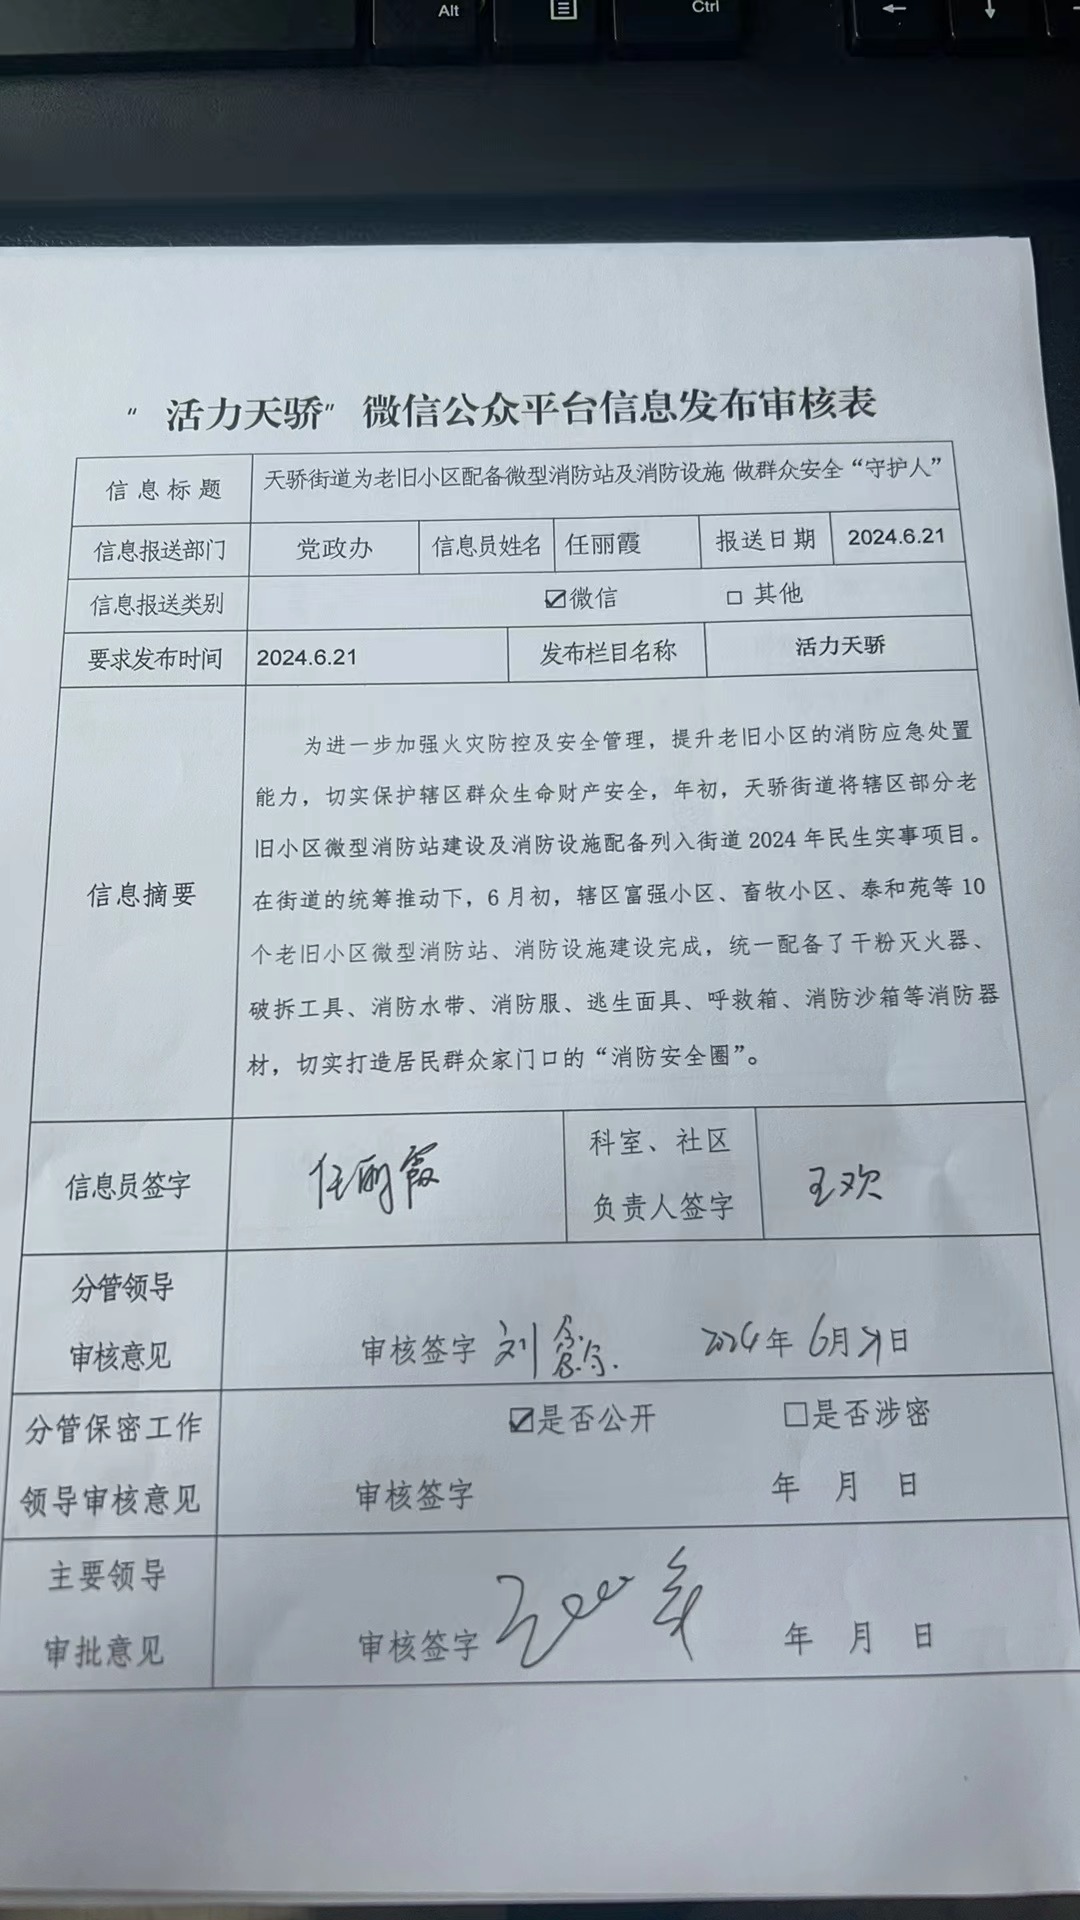 Alt
Ctrl
“ 活力天骄” 微信公众平台信息发布审核表
信息标题 天骄街道为老旧小区配备微型消防站及消防设施 做群众安全“守护人”
信息报送部门 党政办 信息员姓名 任丽霞 报送日期 2024.6.21
信息报送类别 ☑微信 □ 其他
要求发布时间 2024.6.21 发布栏目名称 活力天骄
信息摘要
为进一步加强火灾防控及安全管理，提升老旧小区的消防应急处置
能力，切实保护辖区群众生命财产安全，年初，天骄街道将辖区部分老
旧小区微型消防站建设及消防设施配备列入街道 2024 年民生实事项目。
在街道的统筹推动下，6 月初，辖区富强小区、畜牧小区、泰和苑等 10
个老旧小区微型消防站、消防设施建设完成，统一配备了干粉灭火器、
破拆工具、消防水带、消防服、逃生面具、呼救箱、消防沙箱等消防器
材，切实打造居民群众家门口的“消防安全圈”。
信息员签字 任丽霞
科室、社区
负责人签字
王欢
分管领导
审核意见
审核签字 刘 2024年 6月21日
分管保密工作
领导审核意见
☑是否公开 □是否涉密
审核签字 年 月 日
主要领导
审批意见
审核签字 年 月 日